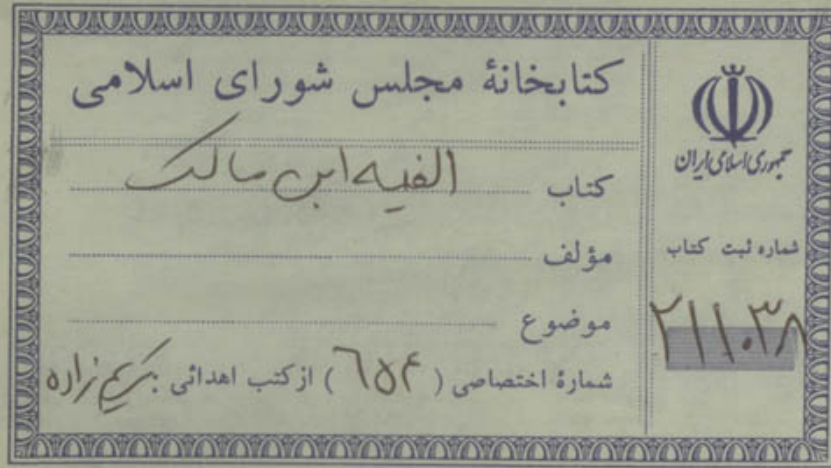 کتابخانهٔ مجلس شورای اسلامی
کتاب الفیه ابن مالک
مؤلف
موضوع
شمارهٔ اختصاصی ( ٦٥۴ ) از کتب اهدائی
جمهوری اسلامی ایران
شماره ثبت کتاب
۲۱۱۰۳۸